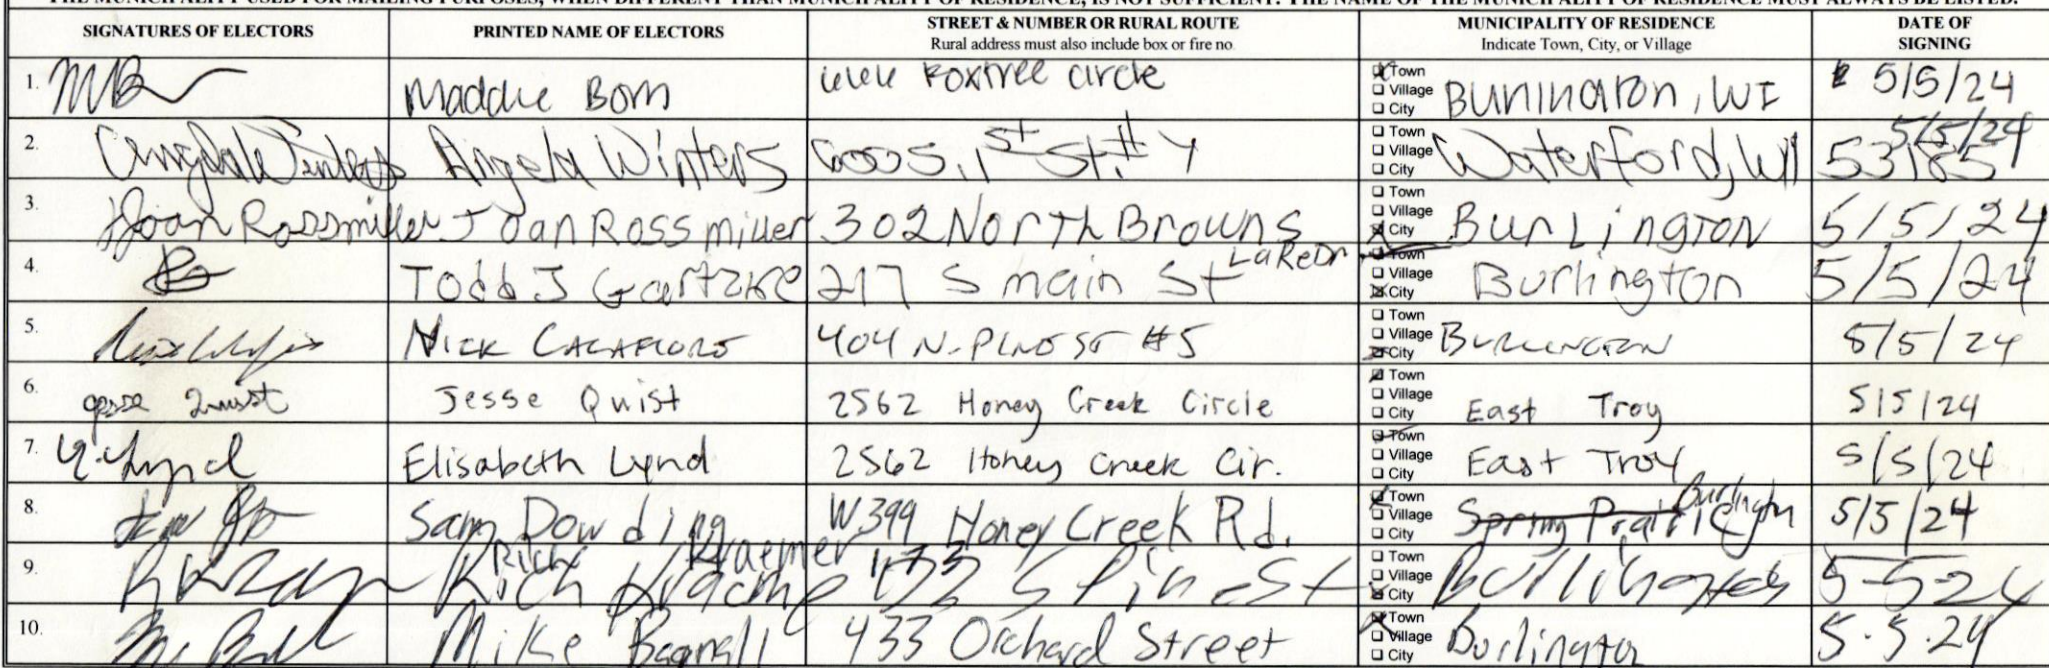 THE MUNICIPALITY USED FOR MAILING PURPOSES, WHEN DIFFERENT THAN MUNICIPALITY OF RESIDENCE, IS NOT SUFFICIENT. THE NAME OF THE MUNICIPALITY OF RESIDENCE MUST ALWAYS BE LISTED.
SIGNATURES OF ELECTORS PRINTED NAME OF ELECTORS STREET & NUMBER OR RURAL ROUTE MUNICIPALITY OF RESIDENCE DATE OF SIGNING
Rural address must also include box or fire no. Indicate Town, City, or Village
1. Maddie Born Foxtree circle Town Village City Burlington, WI 5/5/24
2. Angela Winters Angela Winters 600 S. 1st St. # 4 Town Village City Waterford, WI 53185 5/5/24
3. Joan Rossmiller Joan Rossmiller 302 North Browns Lake Dr. Town Village City Burlington 5/5/24
4. Todd J Gartzke 217 S main St Town Village City Burlington 5/5/24
5. Nick Calafiore 404 N. Pine St #5 Town Village City Burlington 5/5/24
6. Jesse Quist Jesse Quist 2562 Honey Creek Circle Town Village City East Troy 5/5/24
7. E. Lynd Elisabeth Lynd 2562 Honey Creek Cir. Town Village City East Troy 5/5/24
8. Sam Dowding W399 Honey Creek Rd. Town Village City Spring Prairie Burlington 5/5/24
9. Rick Kraemer Rich Kraemer S Pine St Town Village City Burlington 5-5-24
10. Mike Bagnall 433 Orchard Street Town Village City Burlington 5.5.24